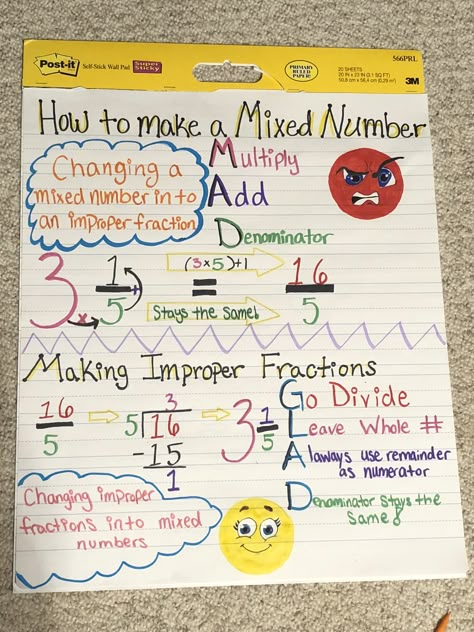 Post-it Self-Stick Wall Pad Super Sticky PRIMARY RULED PAPER! 566PRL
20 SHEETS
20 IN x 23 IN (3,1 SQ FT)
50,8 cm x 58,4 cm (0,29 m²)
3M
How to make a Mixed Number
Changing a
mixed number in to
an improper fraction
Multiply
Add
Denominator
3 1/5 x + (3x5)+1 = 16/5
Stays the Same!
Making Improper Fractions
16/5
3
5 16
-15
1
3 1/5
Go Divide
Leave Whole #
Alaways use remainder
as numerator
Denominator Stays the
Same!
Changing improper
fractions into mixed
numbers